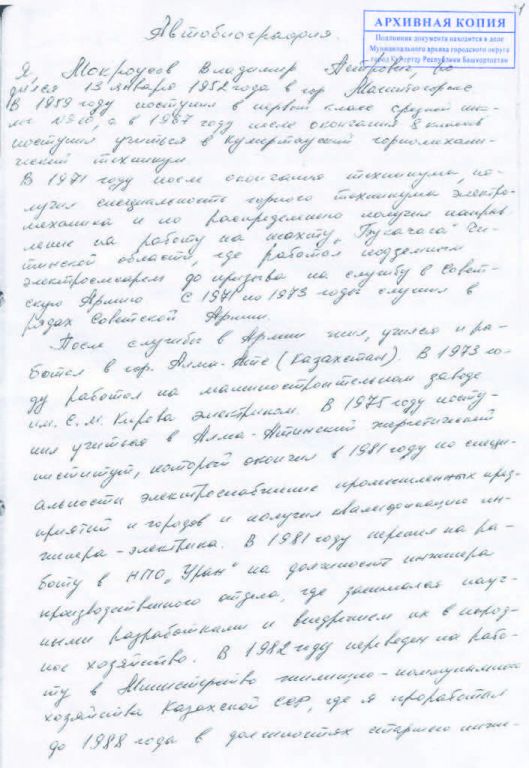 1
АРХИВНАЯ КОПИЯ
Подлинник документа находится в деле
Муниципального архива городского округа
город Кумертау Республики Башкортостан
Автобиография.
Я, Мокроусов Владимир Петрович, ро
дился 13 января 1952 года в гор Магнитогорске
В 1959 году поступил в первый класс средней шко-
лы №10, а в 1967 году после окончания 8 классов
поступил учиться в Кумертауский горномехани-
ческий техникум
В 1971 году после окончания техникума, по-
лучил специальность горного техникума электро-
механика и по распределению получил направ
ление на работу на шахту „Букачача" Чи-
тинской области, где работал подземным
электрослесарем до призыва на службу в Совет-
скую Армию С 1971 по 1973 годы служил в
рядах Советской Армии.
После службы в Армии жил, учился и ра-
ботал в гор. Алма-Ате (Казахстан). В 1973 го-
ду работал на машиностроительном заводе
им. С.М. Кирова электриком. В 1975 году посту-
пил учиться в Алма-Атинский энергетический
институт, который окончил в 1981 году по специ-
альности электроснабжение промышленных пред-
приятий и городов и получил квалификацию ин-
женера-электрика. В 1981 году перешел на ра-
боту в НПО „Уран" на должность инженера
производственного отдела, где занимался науч-
ными разработками и внедрением их в народ-
ное хозяйство. В 1982 году переведен на рабо-
ту в Министерство жилищно-коммунального
хозяйства Казахской ССР, где я проработал
до 1988 года в должностях старшего инже-